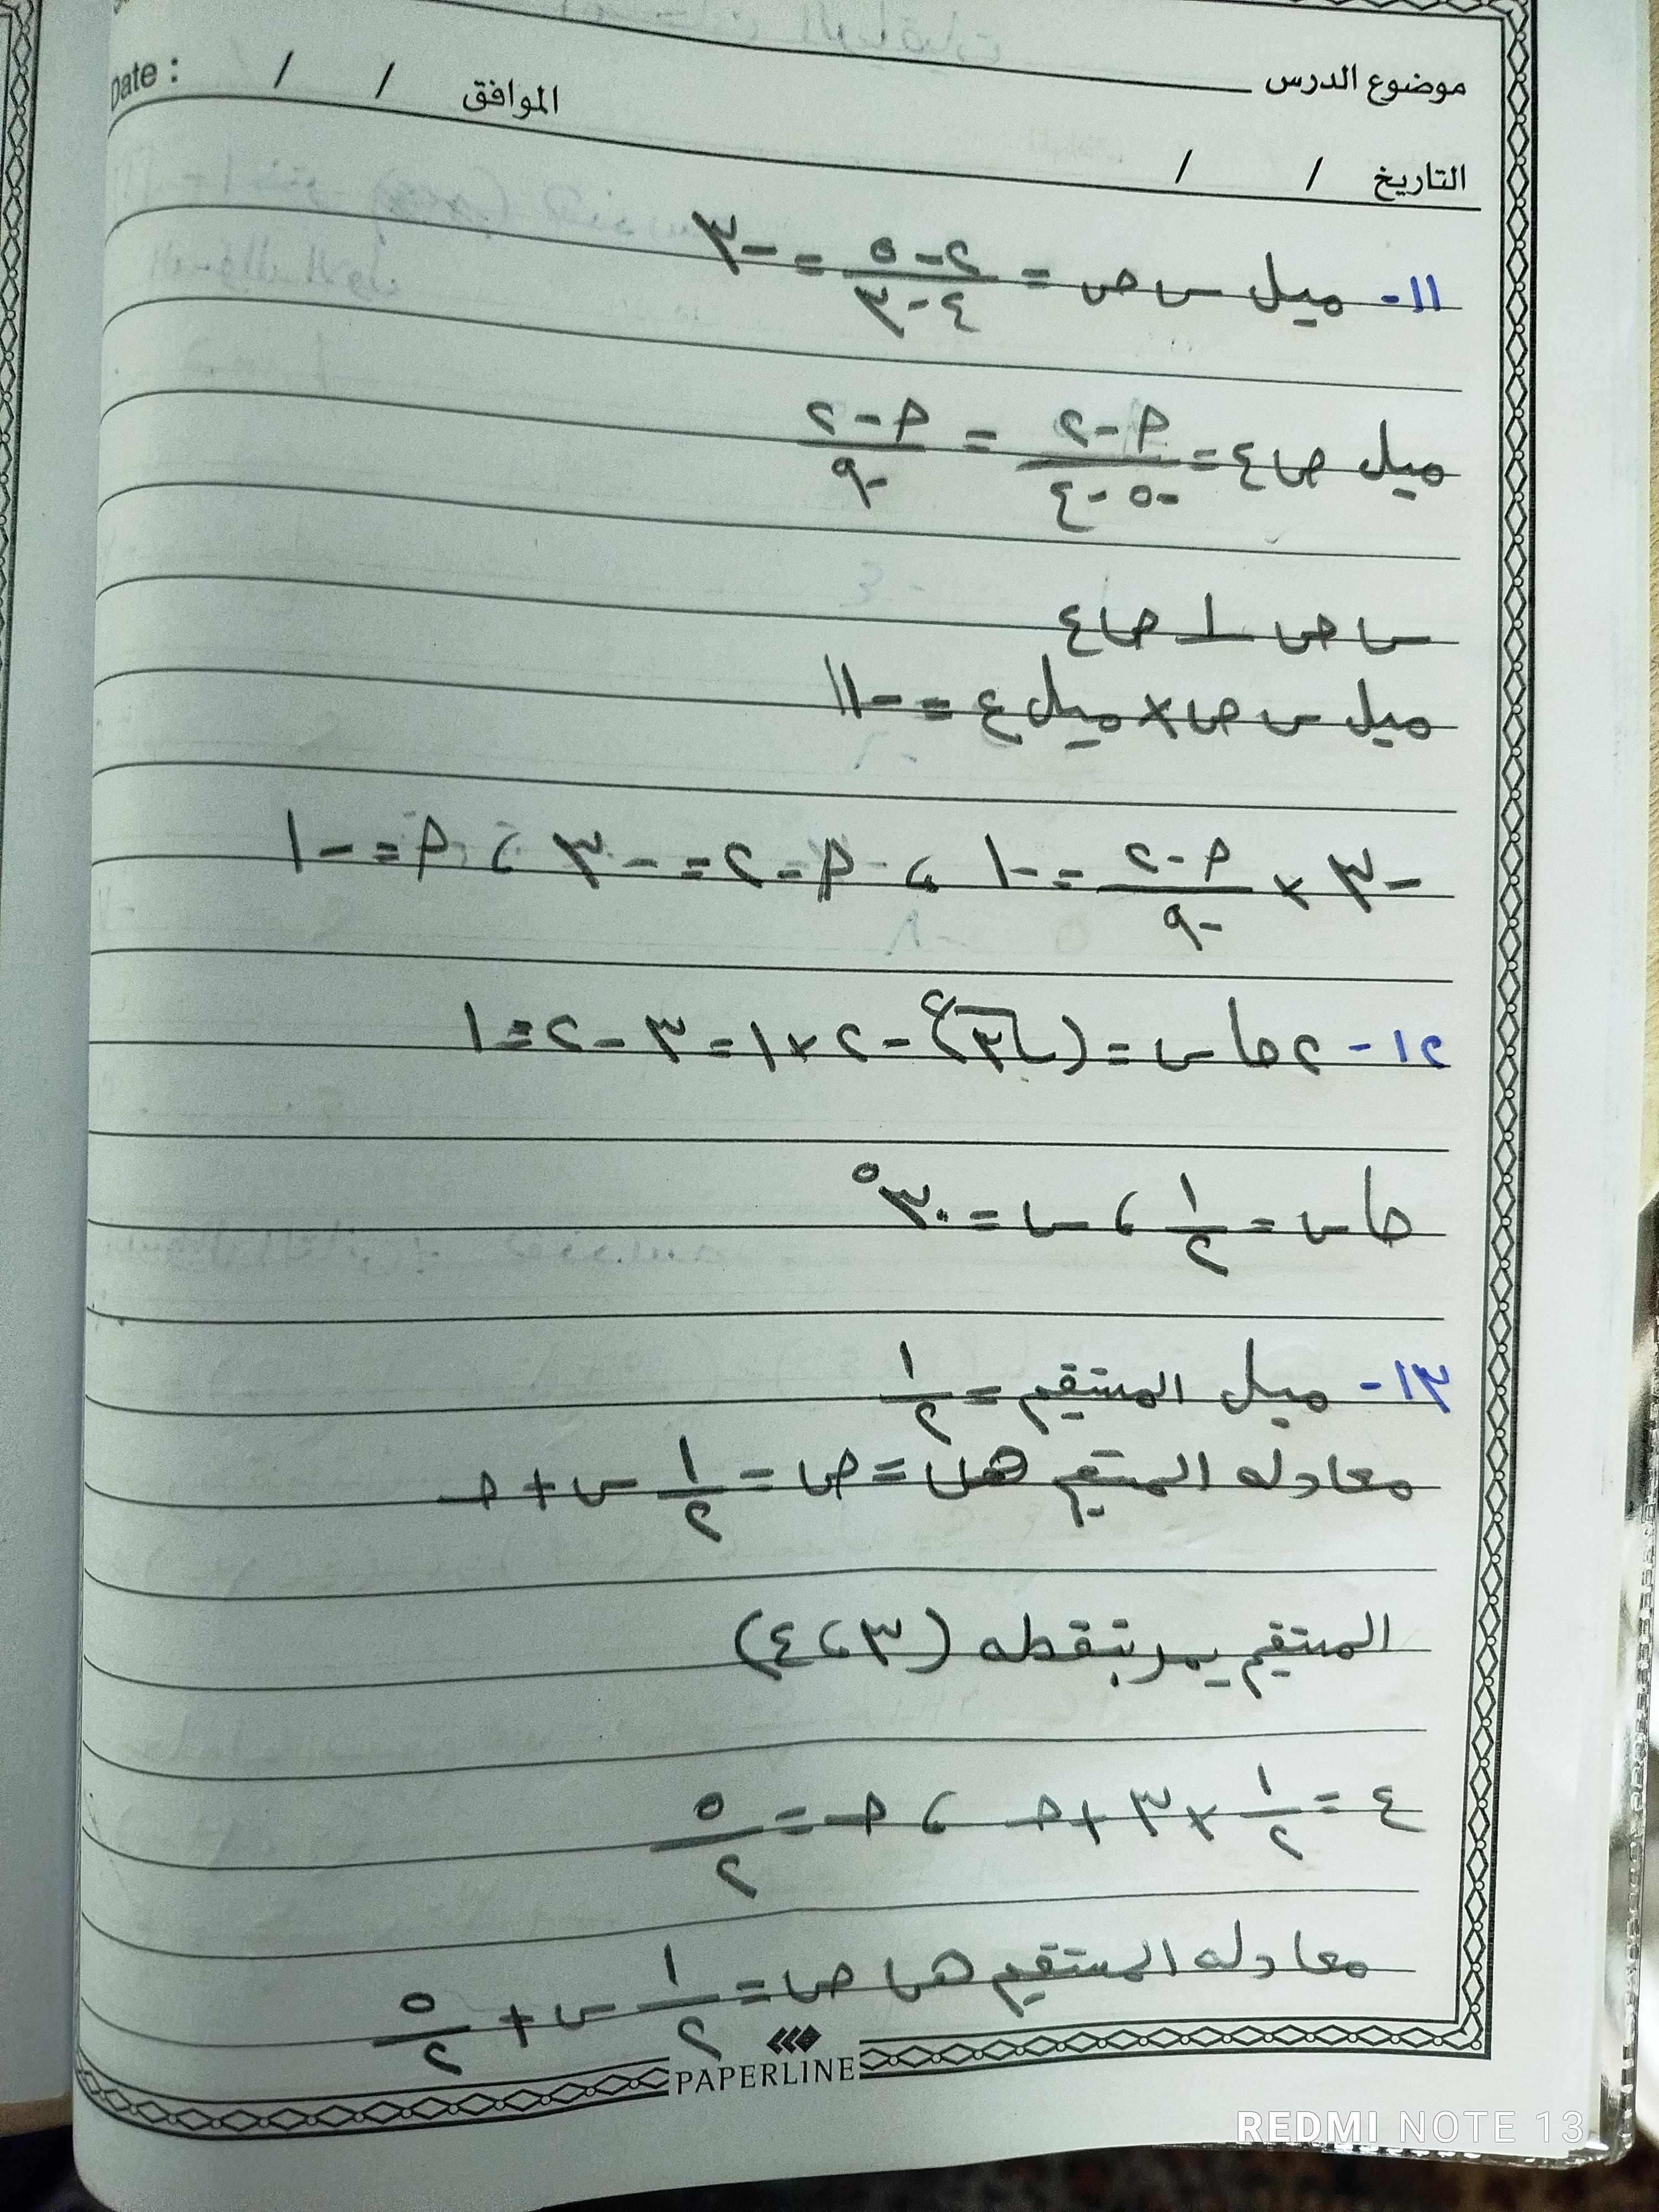 موضوع الدرس
Date : / / الموافق
التاريخ / /
١١- ميل س ص = (٢ - ٥)/(٤ - ٣) = -٣
ميل ص ع = (٢ - م)/(-٥ - ٤) = (٢ - م)/(-٩)
س ص ⊥ ص ع
ميل س ص × ميل ع = -١١
-٣ × (م - ٢)/(-٩) = -١ ، م - ٢ = -٣ ، م = -١
١٢- ٢ جا س = (√٣)^٢ - ٢ × ١ = ٣ - ٢ = ١
جا س = ١/٢ ، س = ٣٠°
١٣- ميل المستقيم = ١/٢
معادله المستقيم هى = ص = ١/٢ س + جـ
المستقيم يمر بنقطه (٣ ، ٤)
٤ = ١/٢ × ٣ + جـ ، جـ = ٥/٢
معادله المستقيم هى ص = ١/٢ س + ٥/٢
PAPERLINE
REDMI NOTE 13